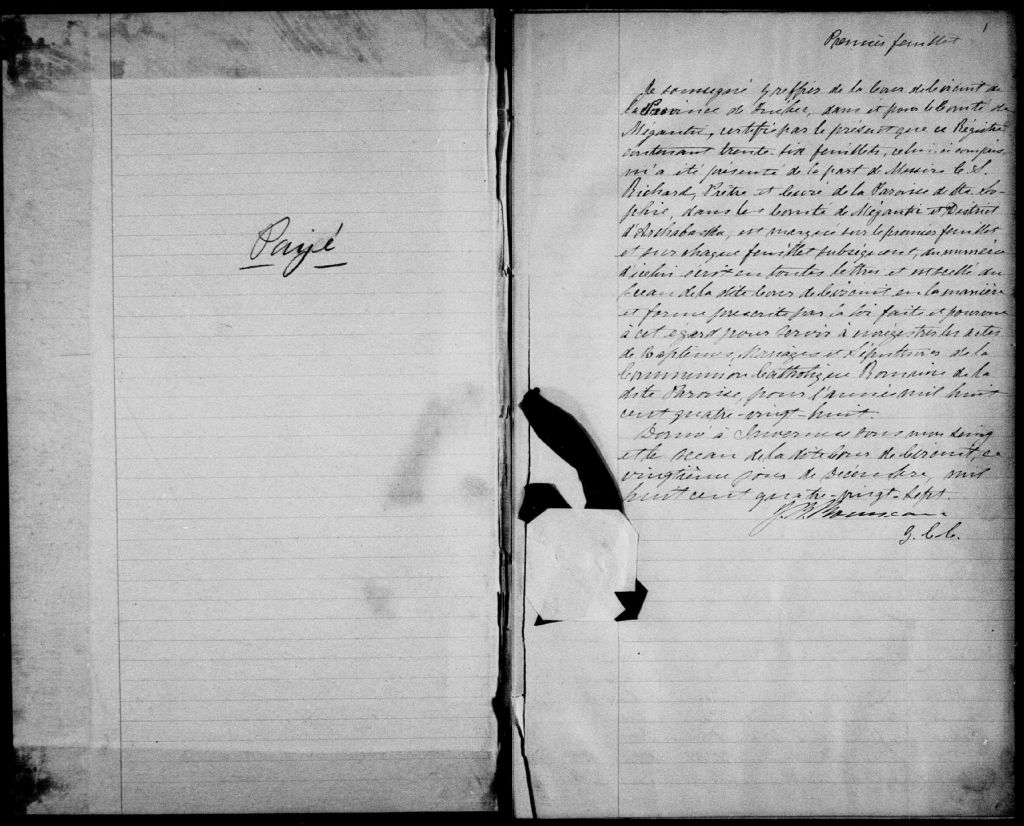 Payé
1
Premier feuillet
Je soussigné Greffier de la Cour de Circuit de
la Province de Québec, dans et pour le Comté de
Mégantic, certifie par le présent que ce Régistre
contenant trente-six feuillets, celui-ci compris
m'a été présenté de la part de Messire C. S.
Richard, Prêtre et Curé de la Paroisse de Ste So-
phie, dans les Comté de Mégantic et District
d'Arthabaska, est marqué sur le premier feuillet
et sur chaque feuillet subséquent, du numéro
d'icelui écrit en toutes lettres et est scellé du
Sceau de la dite Cour de Circuit en la manière
et forme prescrite par la loi faite et pourvue
à cet égard pour servir à enrégistrer les actes
de Baptêmes, Mariages et Sépultures de la
Communion Catholique Romaine de la
dite Paroisse, pour l'année mil huit
cent quatre-vingt-huit.
Donné à Inverness sous mon seing
et le sceau de la dite Cour de Circuit, ce
vingtième jour de Décembre, mil
huit cent quatre-vingt-sept.
Rousseau
G. C. C.